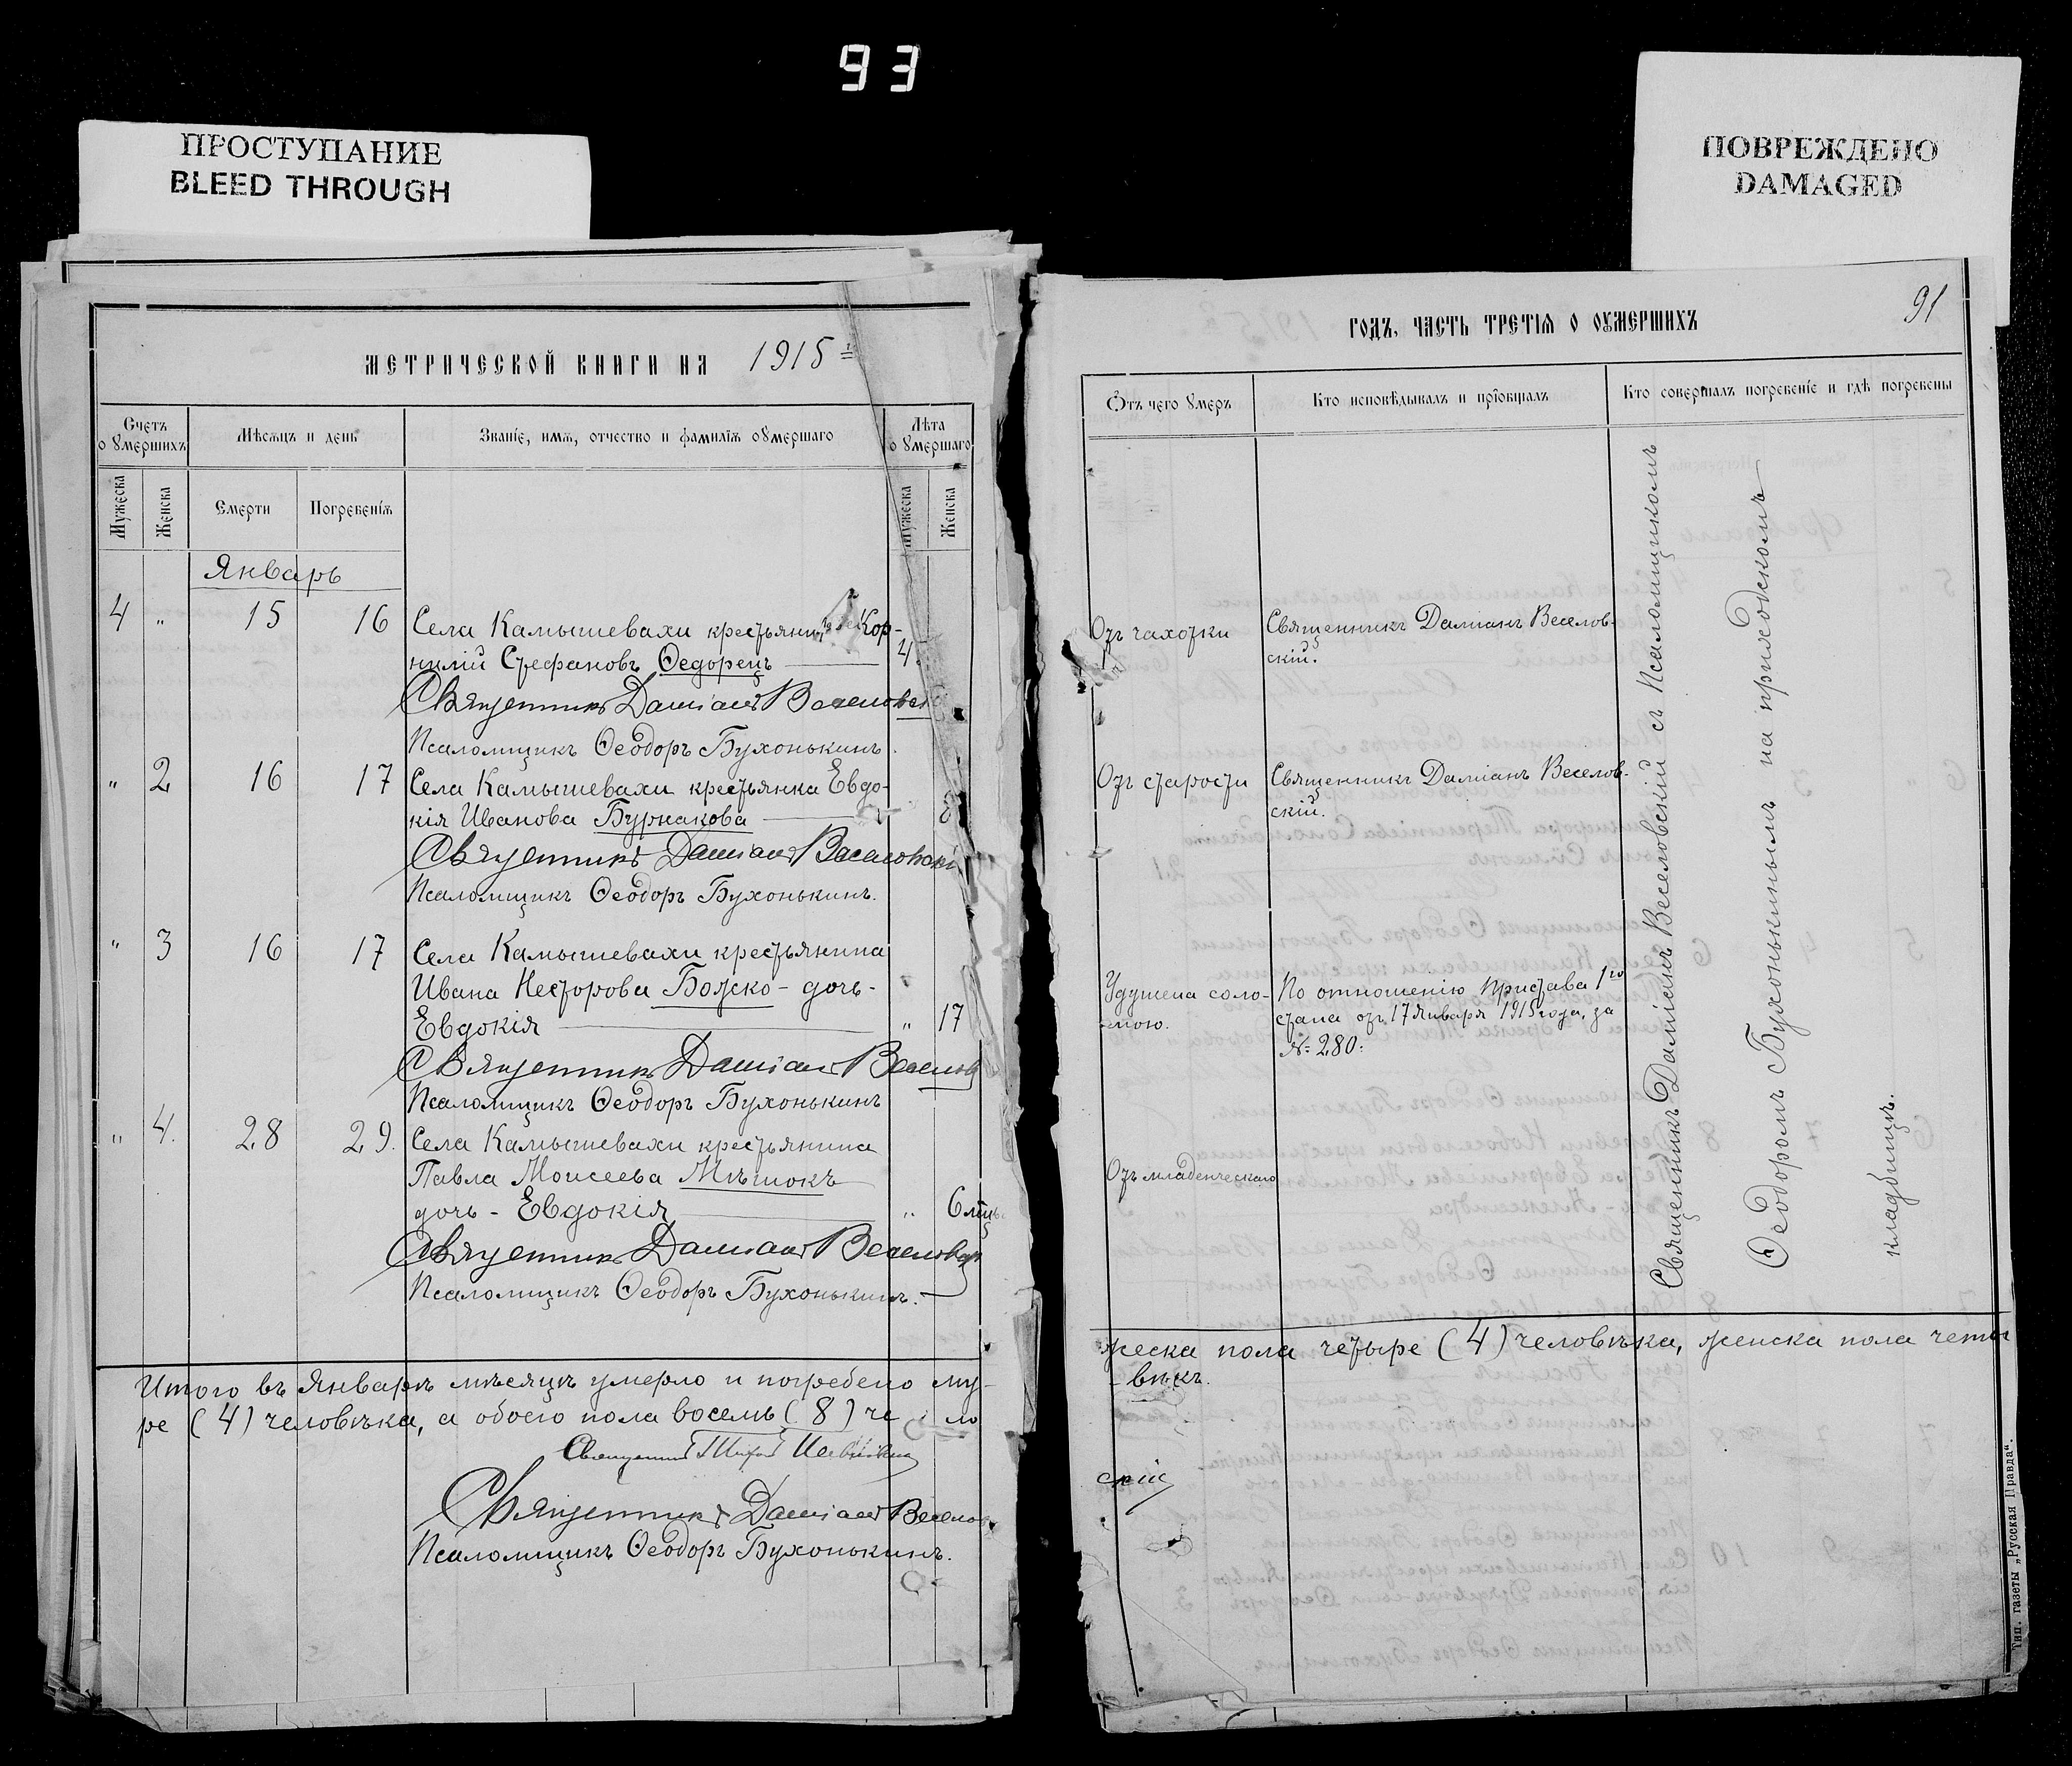 93
ПРОСТУПАНИЕ
BLEED THROUGH
ПОВРЕЖДЕНО
DAMAGED
МЕТРИЧЕСКОЙ КНИГИ НА 1915
Счетъ о умершихъ
Мѣсяцъ и день
Званіе, имя, отчество и фамилія умершаго
Лѣта умершаго
Мужеска
Женска
Смерти
Погребенія
Мужеска
Женска
Январь
4 " 15 16 Села Камышевахи крестьянинъ Кор-
нилій Стефановъ Ѳедорецъ
Священникъ Даміанъ Веселовск
Псаломщикъ Ѳеодоръ Бухонькинъ.
" 2 16 17 Села Камышевахи крестьянка Евдо-
кія Иванова Бурнакова
Священникъ Даміанъ Веселовскі
Псаломщикъ Ѳеодоръ Бухонькинъ.
" 3 16 17 Села Камышевахи крестьянина
Ивана Несторова Божско - дочь -
Евдокія " 17
Священникъ Даміанъ Веселов
Псаломщикъ Ѳеодоръ Бухонькинъ
" 4. 28 29. Села Камышевахи крестьянина
Павла Моисеева Мѣшокъ
дочь - Евдокія " 6 мѣц.
Священникъ Даміанъ Веселовск
Псаломщикъ Ѳеодоръ Бухонькинъ.
Итого въ Январѣ мѣсяцѣ умерло и погребено му-
ре (4) человѣка, а обоего пола восемь (8) чело
Священникъ
Священникъ Даміанъ Веселов
Псаломщикъ Ѳеодоръ Бухонькинъ.
ГОДЪ, ЧАСТЬ ТРЕТІЯ О УМЕРШИХЪ
91
Отъ чего умеръ
Кто исповѣдывалъ и пріобщалъ
Кто совершалъ погребеніе и гдѣ погребены
Отъ чахотки
Священникъ Даміанъ Веселов-
скій.
Отъ старости
Священникъ Даміанъ Веселов-
скій.
Удушена соло-
мою.
По отношенію Пристава 1го
стана отъ 17 Января 1915 года, за
№ 280.
Отъ младенческаго
Священникъ Даміанъ Веселовскій съ Псаломщикомъ
Ѳеодоромъ Бухонькинымъ на приходскомъ
кладбищѣ.
жеска пола четыре (4) человѣка, женска пола четы
- вѣкъ.
скій
Тип. газеты „Русская Правда“.